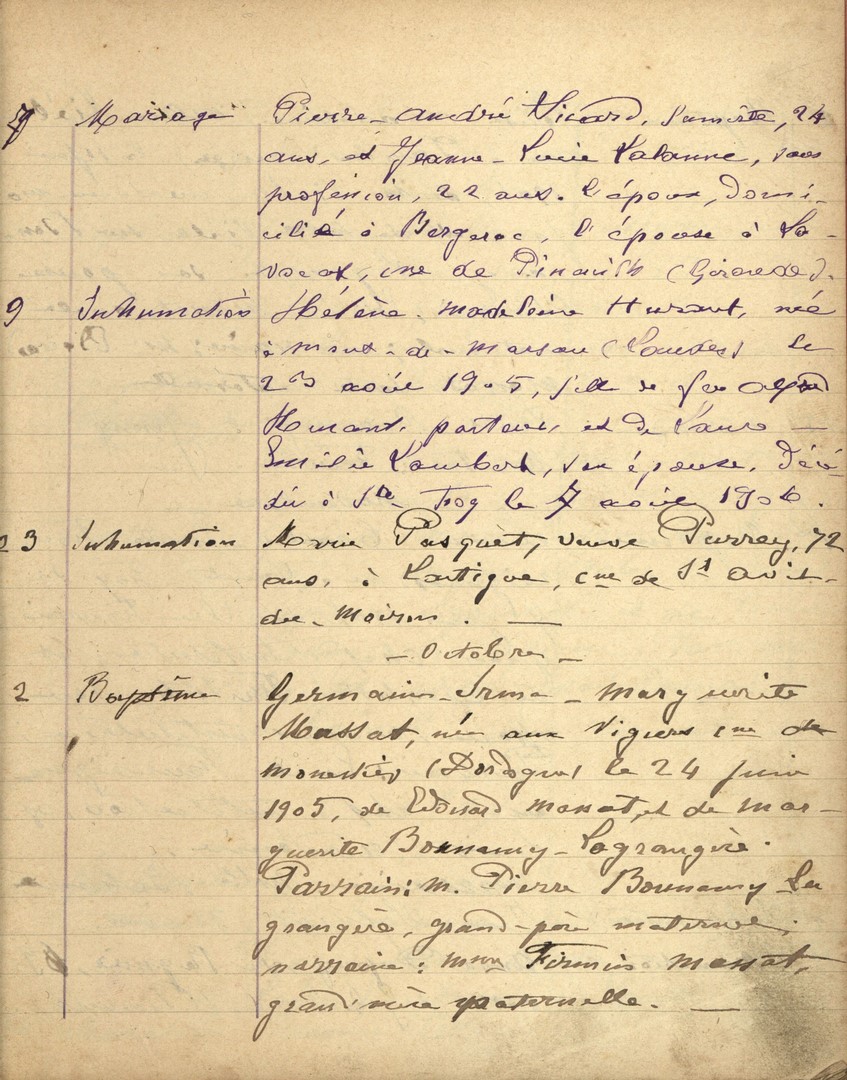 7 Mariage Pierre-André Sicard, 24
ans, et Jeanne-Lucie Lalanne, sans
profession, 22 ans. L'époux, domi-
cilié à Bergerac, l'épouse à La-
vocat, cne de Pineuilh (Gironde).
9 Inhumation Hélène-Madeleine Hurant, née
à Mont-de-Marsan (Landes) le
23 août 1905, fille de feu
Hurant, porteur, et de Laure
Emilie Lambert, son épouse, décé-
dée à Ste Foy le 7 août 1906.
23 Inhumation Marie Pasquet, veuve Purrey, 72
ans, à Lartigue, cne de St Avit-
du-Moiron. —
— Octobre —
2 Baptême Germaine-Irma-Marguerite
Massat, née aux Vigiers cne de
Monestier (Dordogne) le 24 juin
1905, de Edouard Massat, et de Mar-
guerite Bonnamy-Lagrangère.
Parrain: M. Pierre Bonnamy-La
grangère, grand-père maternel;
marraine: Mme Firmin Massat,
grand'mère paternelle. —